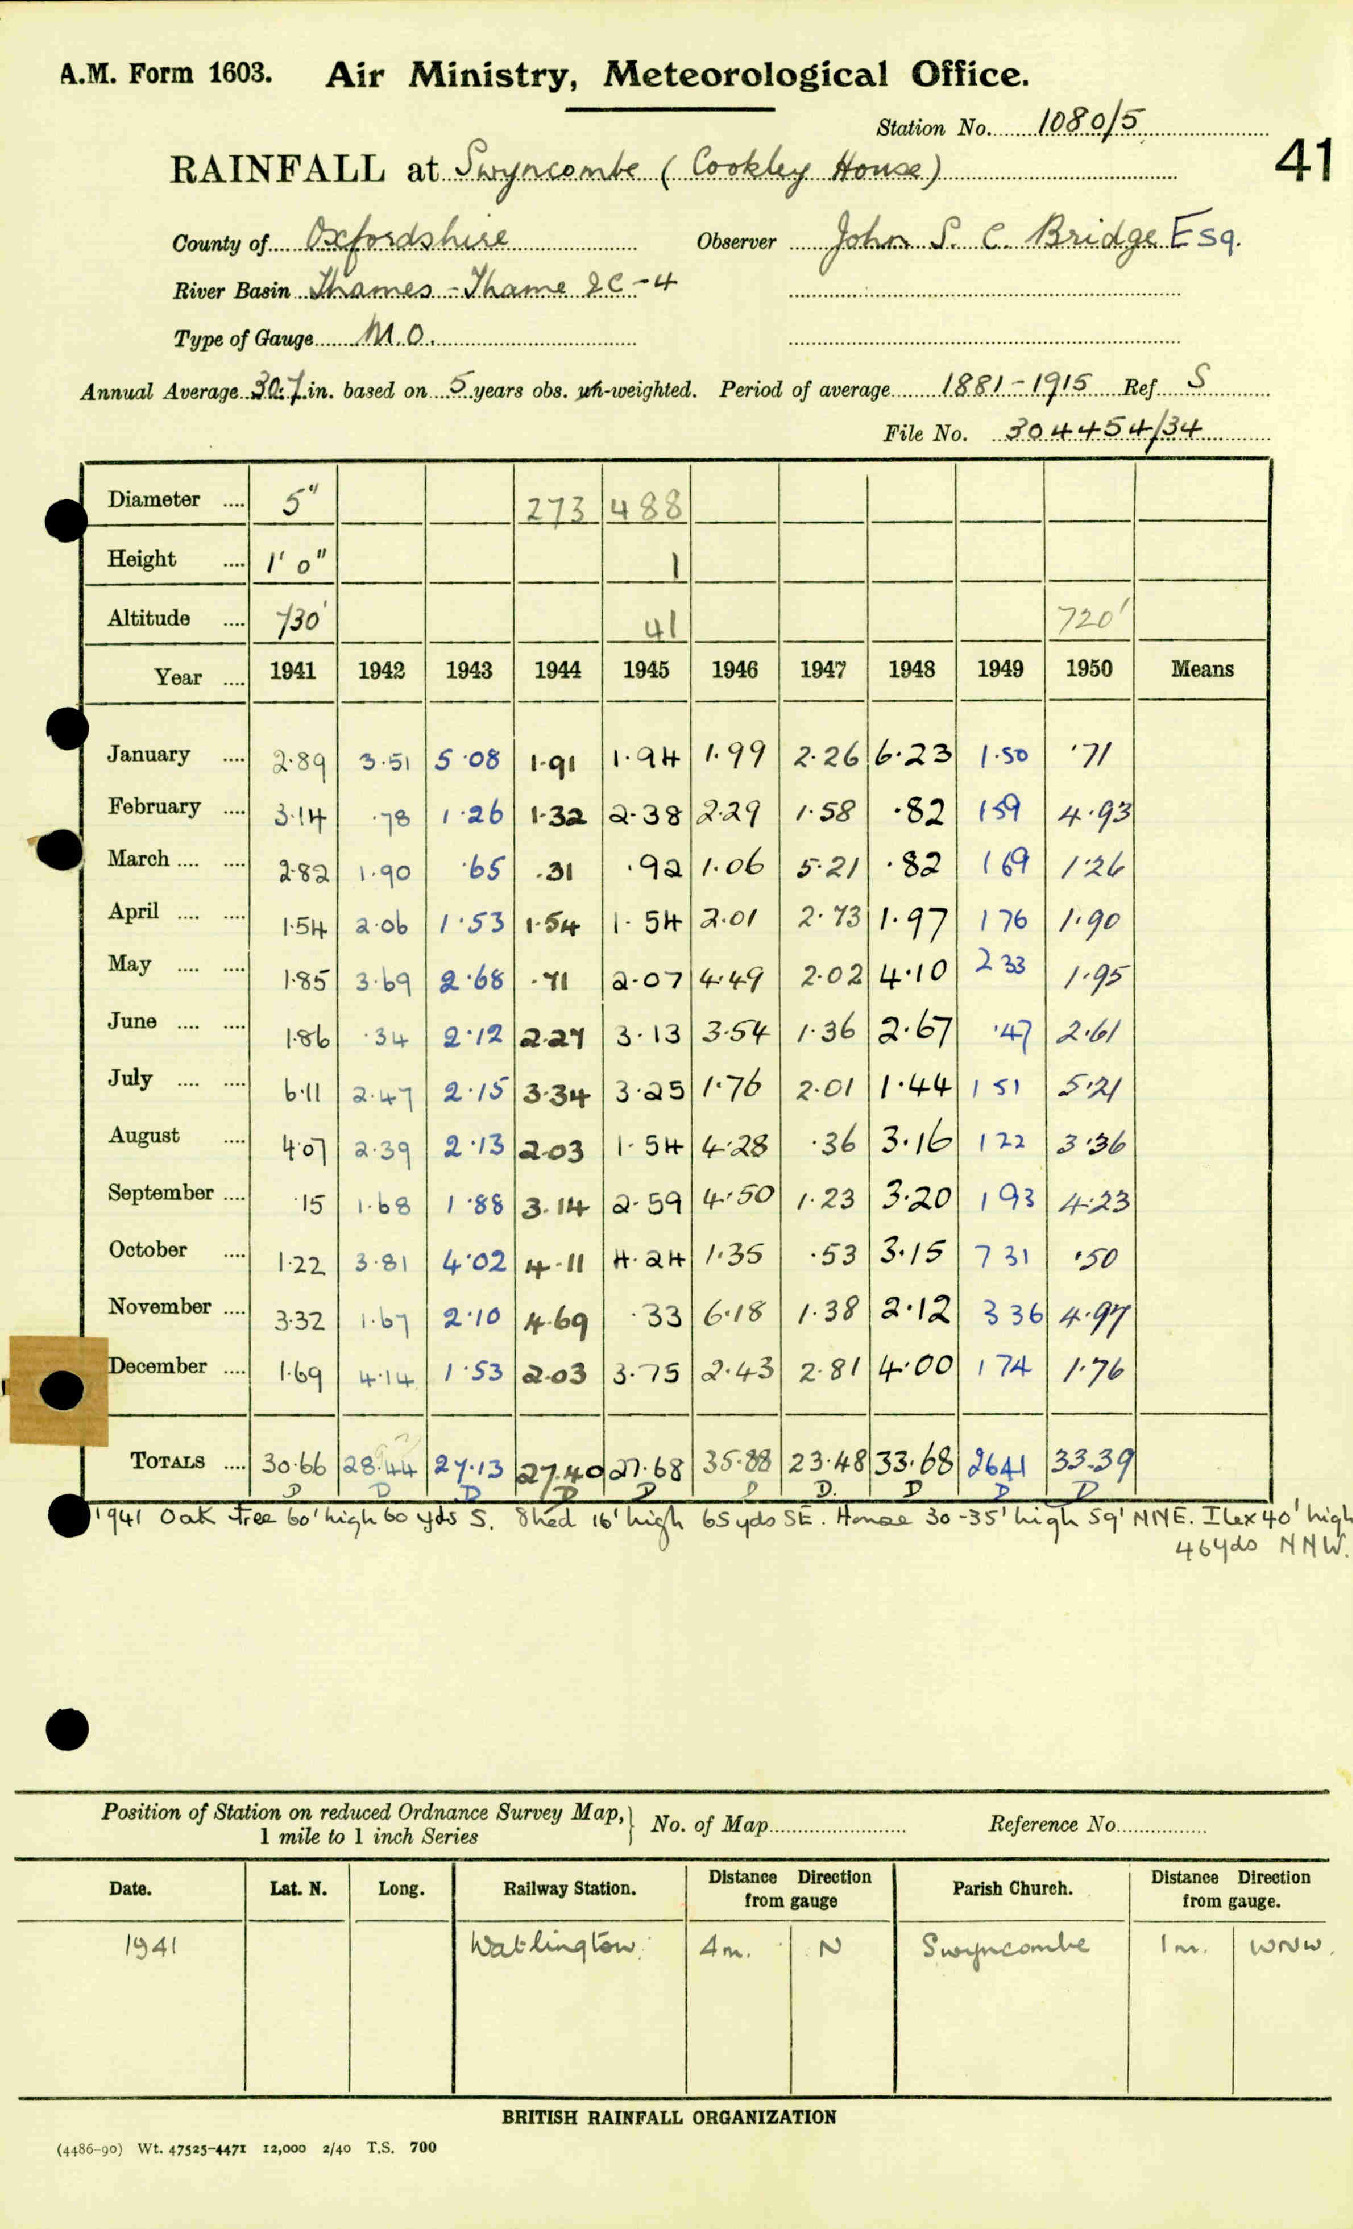 A.M. Form 1603. Air Ministry, Meteorological Office.
Station No. 1080/5
41
RAINFALL at Swyncombe (Cookley House)
County of Oxfordshire Observer John S. C. Bridge Esq.
River Basin Thames - Thame 2C-4
Type of Gauge M.O.
Annual Average 30.7 in. based on 5 years obs. un-weighted. Period of average 1881-1915 Ref S
File No. 304454/34
Diameter .... 5" 273 488
Height .... 1' 0" 1
Altitude .... 730' 41 720'
Year .... 1941 1942 1943 1944 1945 1946 1947 1948 1949 1950 Means
January .... 2.89 3.51 5.08 1.91 1.94 1.99 2.26 6.23 1.50 .71
February .... 3.14 .78 1.26 1.32 2.38 2.29 1.58 .82 159 4.93
March .... .... 2.82 1.90 .65 .31 .92 1.06 5.21 .82 169 1.26
April .... .... 1.54 2.06 1.53 1.54 1.54 2.01 2.73 1.97 176 1.90
May .... .... 1.85 3.69 2.68 .71 2.07 4.49 2.02 4.10 233 1.95
June .... .... 1.86 .34 2.12 2.27 3.13 3.54 1.36 2.67 .47 2.61
July .... .... 6.11 2.47 2.15 3.34 3.25 1.76 2.01 1.44 151 5.21
August .... 4.07 2.39 2.13 2.03 1.54 4.28 .36 3.16 122 3.36
September .... .15 1.68 1.88 3.14 2.59 4.50 1.23 3.20 193 4.23
October .... 1.22 3.81 4.02 4.11 4.24 1.35 .53 3.15 731 .50
November .... 3.32 1.67 2.10 4.69 .33 6.18 1.38 2.12 336 4.97
December .... 1.69 4.14 1.53 2.03 3.75 2.43 2.81 4.00 174 1.76
TOTALS .... 30.66 28.44 27.13 27.40 27.68 35.88 23.48 33.68 2641 33.39
D D D D D D D. D D D
1941 Oak Tree 60' high 60 yds S. Shed 16' high 65yds SE. House 30-35' high 59' NNE. Ilex 40' high
46yds NNW.
Position of Station on reduced Ordnance Survey Map, 1 mile to 1 inch Series } No. of Map Reference No.
Date. Lat. N. Long. Railway Station. Distance Direction from gauge Parish Church. Distance Direction from gauge.
1941 Watlington. 4m. N Swyncombe 1m. WNW.
BRITISH RAINFALL ORGANIZATION
(4486-90) Wt. 47525-4471 12,000 2/40 T.S. 700